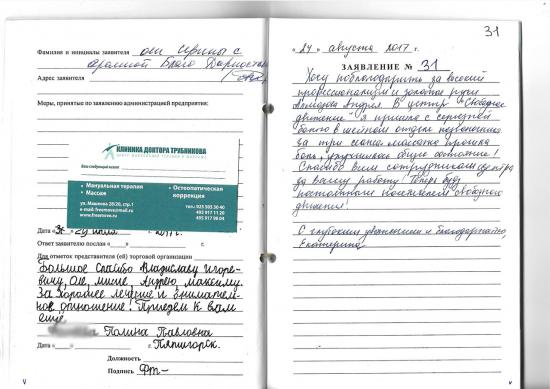 Фамилия и инициалы заявителя от Ирины с
огромной Благодарностью
Адрес заявителя
Меры, принятые по заявлению администрацией предприятия:
КЛИНИКА ДОКТОРА ТРУБНИКОВА
ЦЕНТР МАНУАЛЬНОЙ ТЕРАПИИ И МАССАЖА
• Мануальная терапия
• Массаж
• Остеопатическая
коррекция
ул. Машкова 28/20, стр.1
e-mail. freemove@mail.ru
www.freemove.ru
495 917 11 20
495 917 98 04
Дата
Ответ заявителю послан «
Для отметок представителя (ей) торговой организации
Большое спасибо Владиславу Игоре-
вичу, Оле, Мише, Андрею, Максиму.
За хорошее лечение и внимател-
ное отношение! Приедем к вам
ещё.
Полина Павловна
Дата « Пятигорск.
Должность
Подпись
31
« 24 » августа 2017 г.
ЗАЯВЛЕНИЕ № 31
Хочу поблагодарить за высокий
профессионализм и золотые руки
Андрея. В центр "Свободное
движение" я пришла с серьезной
болью в шейном отделе позвоночника
за три сеанса массажа прошла
боль, улучшилось общее состояние!
Спасибо всем сотрудникам центра
за вашу работу! Теперь буду
постоянным посетителем свободного
движения!
С глубоким уважением и благодарностью
Екатерина